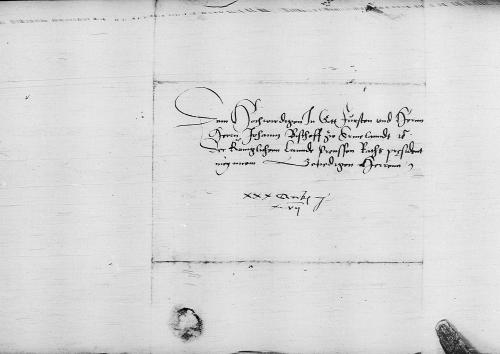 Dem Hochwirdigen In Gott Fursten und Herrn
Hern Johann Bischoff zu Ermelandt
der königlichen Lannde Preussen Raths president
mynem Gnedigen Herrenn
xxx
vij